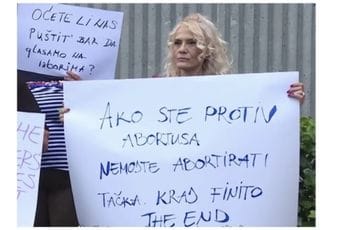 OĆETE LI NAS
PUŠTIT' BAR DA
GLASAMO NA
IZBORIMA?
HE
ERS
ES
T
AKO STE PROTIV
ABORTUSA
NEMOJTE ABORTIRATI
TAČKA. KRAJ FINITO
THE END